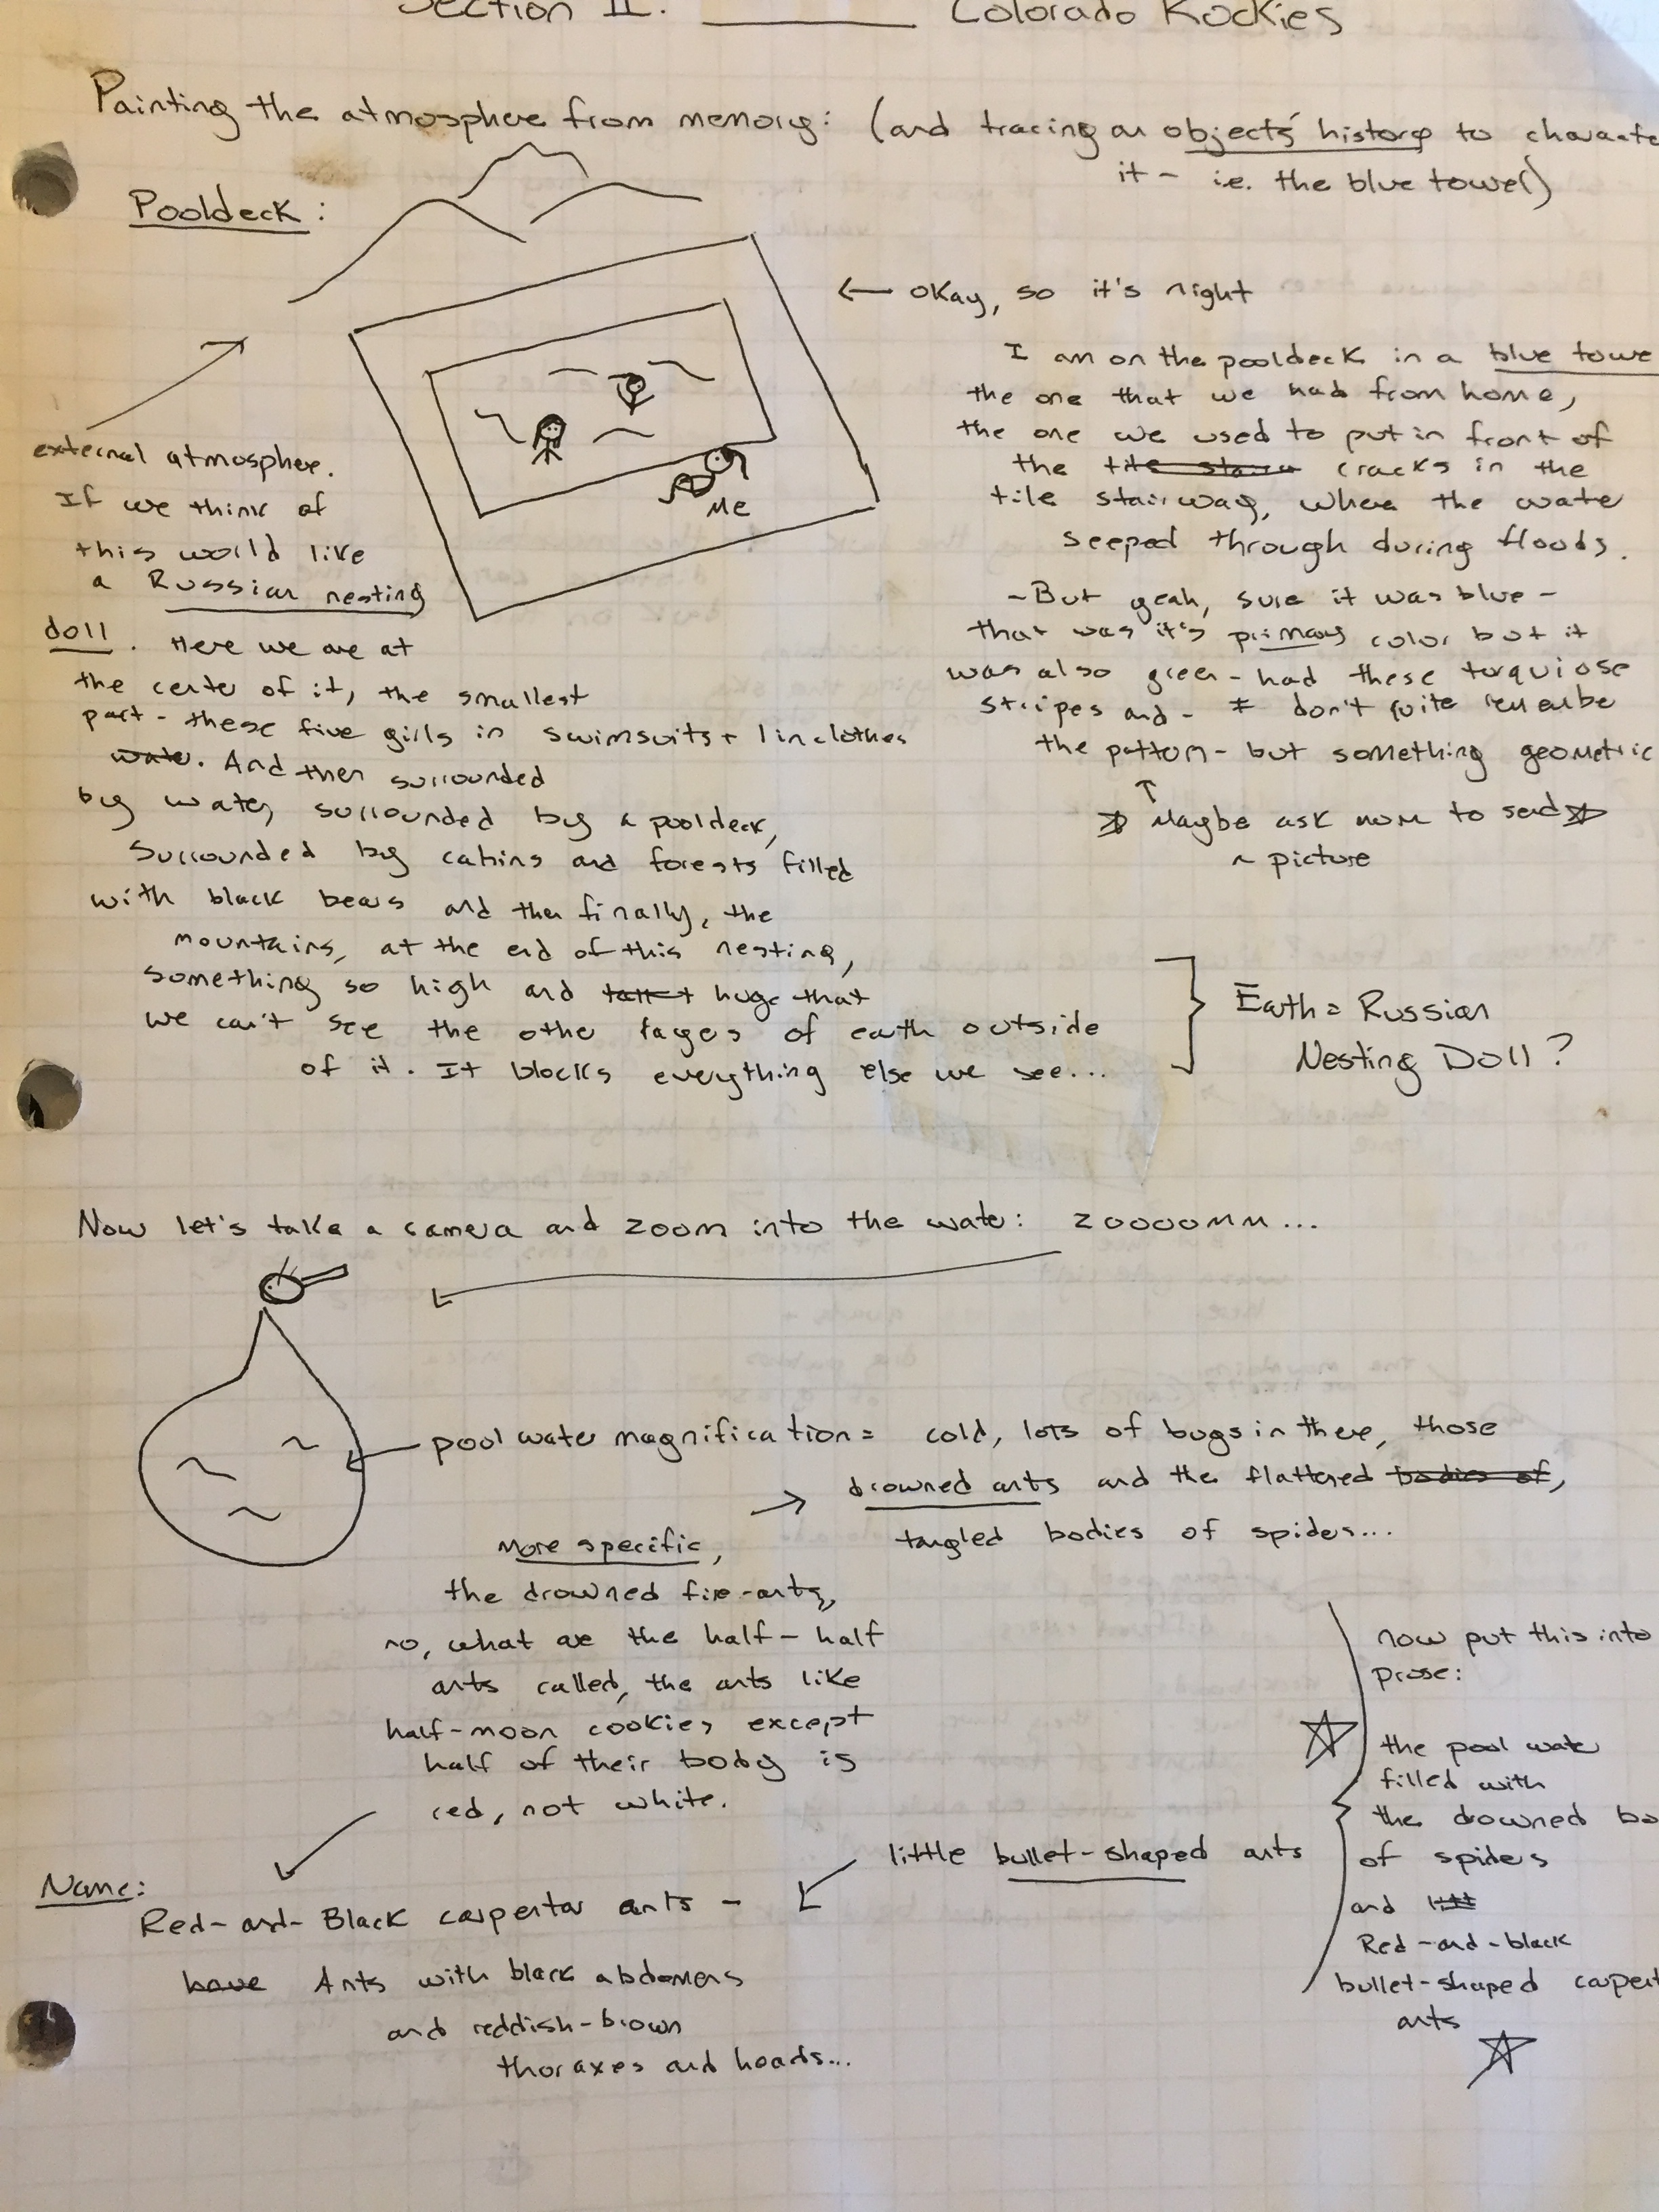 Section II. Colorado Rockies
Painting the atmosphere from memory: (and tracing an objects' history to characte
it - i.e. the blue towel)
Pooldeck:
← okay, so it's night
I am on the pooldeck in a blue towe
the one that we had from home,
the one we used to put in front of
the cracks in the
tile stairway, where the water
seeped through during floods.
-But yeah, sure it was blue-
that was it's primary color but it
was also green - had these torquiose
stripes and - I don't quite remember
the pattern - but something geometric
↑
☆ Maybe ask mom to send ☆
a picture
Me
external atmosphere.
If we think of
this world like
a Russian nesting
doll. Here we are at
the center of it, the smallest
part - these five girls in swimsuits + linclothes
water. And then surrounded
by water, surrounded by a pooldeck,
Surrounded by cabins and forests filled
with black bears and then finally, the
mountains, at the end of this nesting,
something so high and huge that
we can't see the other layers of earth outside
of it. It blocks everything else we see...
Earth = Russian
Nesting Doll?
Now let's take a camera and zoom into the water: zoooomm...
pool water magnification = cold, lots of bugs in there, those
→ drowned ants and the flattened bodies of,
tangled bodies of spiders...
More specific,
the drowned fire-ants,
no, what are the half-half
ants called, the ants like
half-moon cookies except
half of their body is
red, not white.
Name:
Red-and-Black carpentar ants -
have Ants with black abdomens
and reddish-brown
thoraxes and heads...
little bullet-shaped ants
now put this into
prose:
☆ the pool water
filled with
the drowned bo
of spiders
and
Red-and-black
bullet-shaped carpent
ants
☆